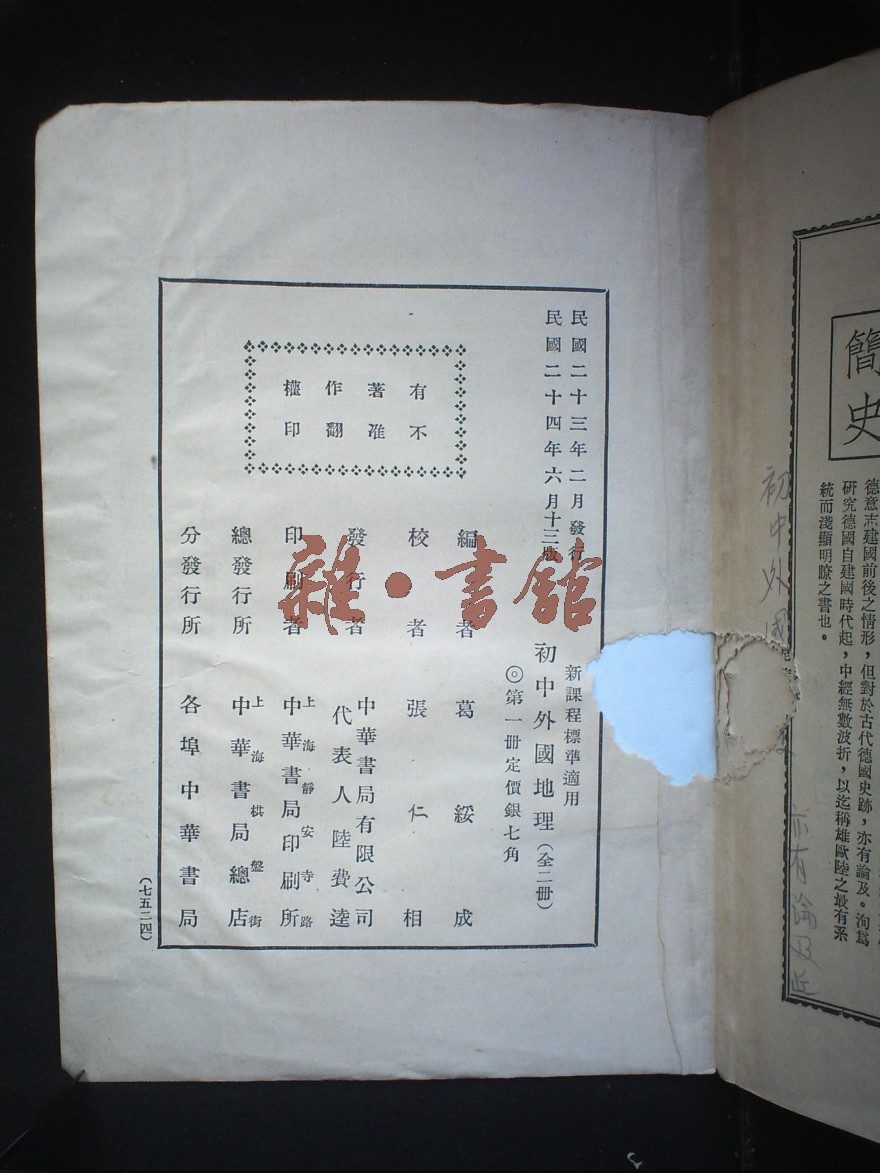 簡史
德意志建國前後之情形，但對於古代德國史跡，亦有論及。洵爲
研究德國自建國時代起，中經無數波折，以迄稱雄歐陸之最有系
統而淺顯明瞭之書也。
初中外國
亦有論及
民國二十三年二月發行
民國二十四年六月十三版
有不
著准
作翻
權印
新課程標準適用
初中外國地理（全二冊）
◎第一冊定價銀七角
編者 葛綏成
校者 張仁相
發行者 中華書局有限公司
代表人 陸費逵
印刷者 上海靜安寺路
中華書局印刷所
總發行所 上海棋盤街
中華書局總店
分發行所 各埠中華書局
（七五二四）
雜·書館